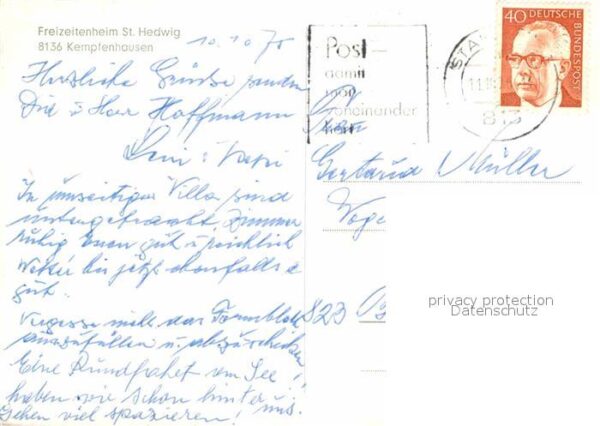 Freizeitenheim St. Hedwig
8136 Kempfenhausen
Herzliche Grüße senden
Dir u Herr Hoffmann
In Villa sind
untergebracht, Zimmer
ruhig Essen gut u reichlich
Wetter bis jetzt ebenfalls
gut.
Vergesse nicht das Formblatt
auszufüllen u. abzuschicken
Eine Rundfahrt am See
haben wir schon hinter uns.
Gehen viel spazieren!
Post-
damit
man
voneinander
hört
40 DEUTSCHE
BUNDESPOST
STA
813
Frau
Gertrud Müller
823
privacy protection
Datenschutz